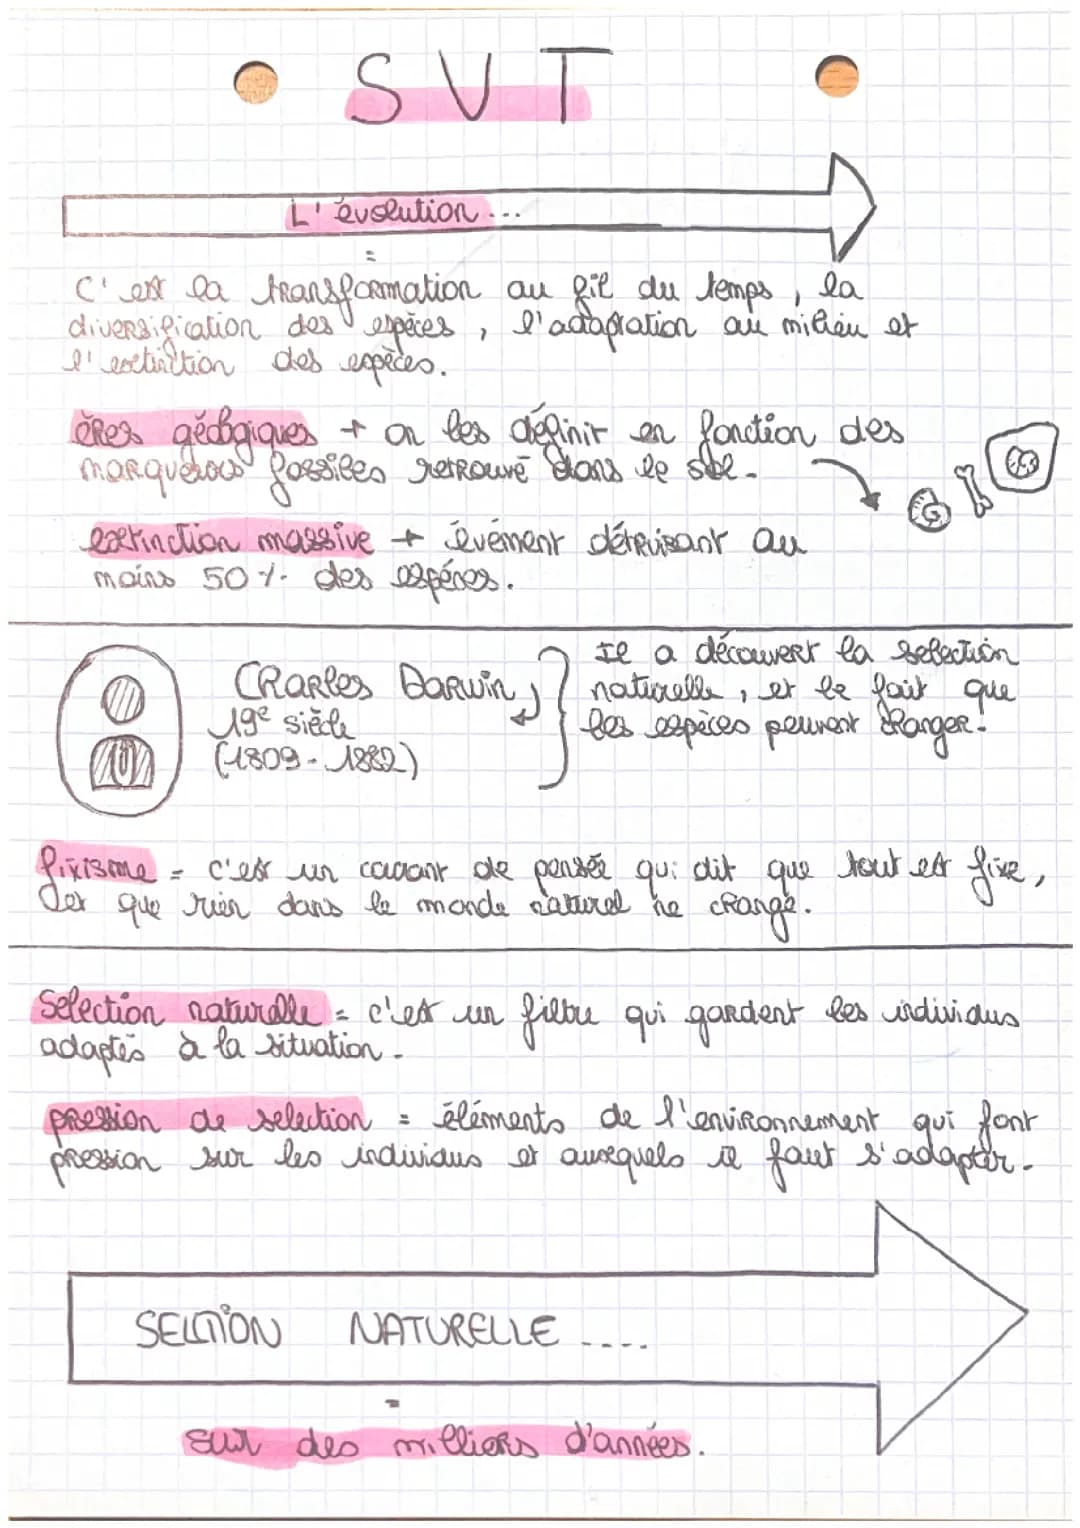 SVT
L'évolution ...
=
C'est la transformation au fil du temps, la
diversification des espèces, l'adaptation au milieu et
l'extinction des espèces.
ères géologiques → on les définir en fonction des
marqueurs fossiles retrouvé dans le sol.
extinction massive → évément détruisant au
moins 50 % des espéces.
Charles Darwin,
19e siècle
(1809 - 1882)
Il a découvert la selection
naturelle, et le fait que
les espèces peuvent changer.
fixisme = c'est un courant de pensée qui dit que tout est fixe,
et que rien dans le monde naturel ne change.
Selection naturelle = c'est un filtre qui gardent les individus
adaptés à la situation.
pression de selection = éléments de l'environnement qui font
pression sur les individus et auxquels il faut s'adapter.
SELCTION NATURELLE ....
=
sur des milliers d'années.